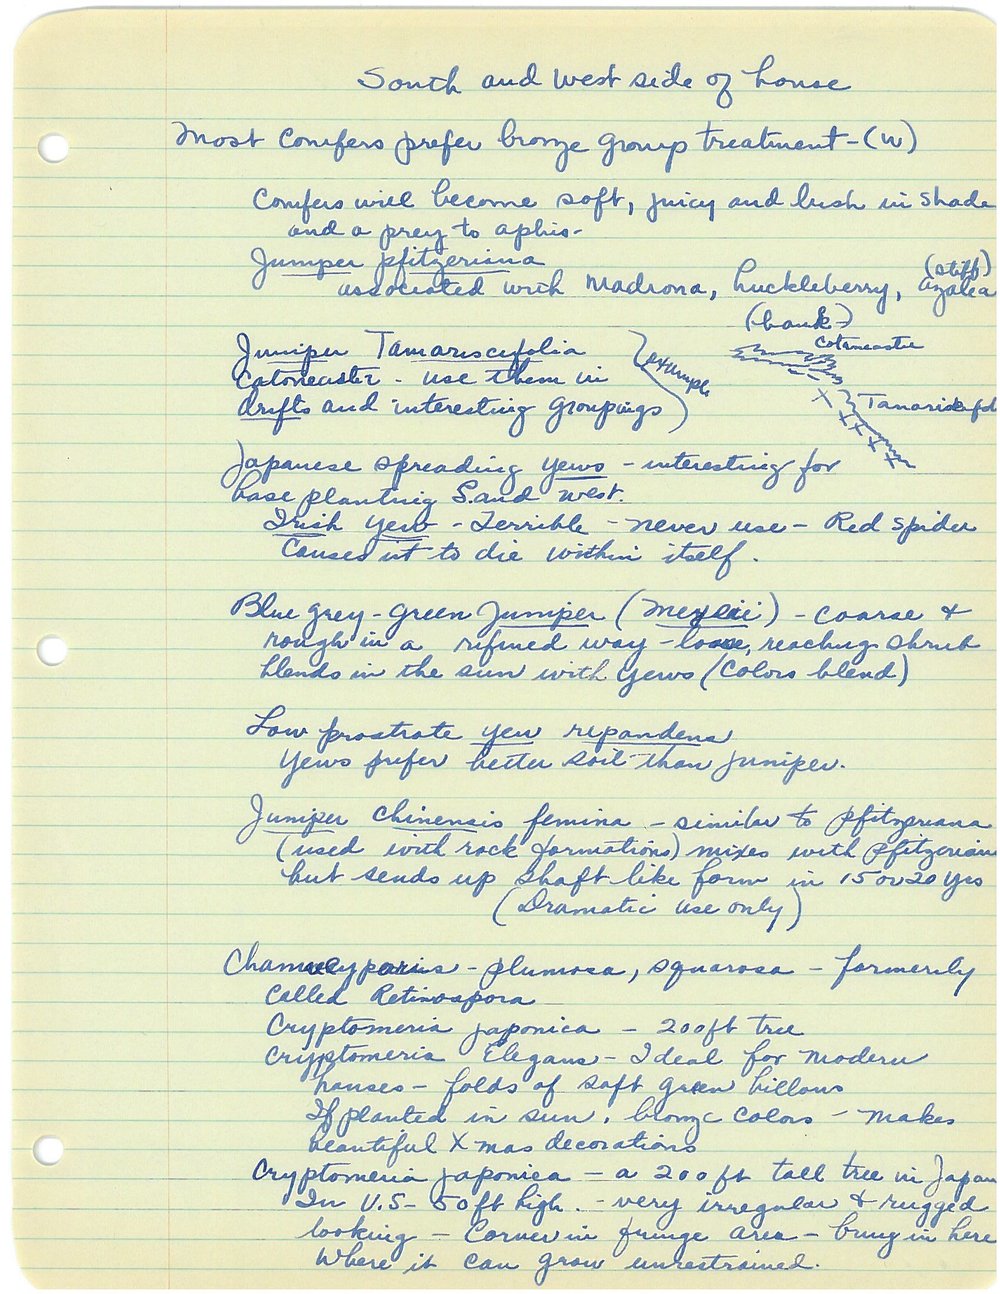 South and West side of house
Most Conifers prefer bronze group treatment - (W)
Conifers will become soft, juicy and lush in shade
and a prey to aphis -
Juniper pfitzeriana
(stiff)
associated with Madrona, huckleberry, azalea
(bank -)
Cotoneaster
Juniper Tamariscifolia
Catoneaster - use them in
drifts and interesting groupings
example
X X X X X
Japanese spreading yews - interesting for
base planting S. and West.
Irish Yew - Terrible - never use - Red spider
causes it to die within itself.
Blue grey - green Juniper (Meyeii) - coarse &
rough in a refined way - loose, reaching shrub
blends in the sun with yews (colors blend)
Low prostrate yew repandens
Yews prefer better soil than juniper.
Juniper Chinensis femina - similar to pfitzeriana
(used with rock formations) mixes with pfitzerian
but sends up shaft like form in 15 or 20 yrs
(Dramatic use only)
- plumosa, squarosa - formerily
called Retinospora
Cryptomeria japonica - 200 ft tree
Cryptomeria Elegans - Ideal for modern
houses - folds of soft green billows
If planted in sun, bronze colors - makes
beautiful Xmas decorations
Cryptomeria japonica - a 200 ft tall tree in Japan
In U.S - 50 ft high. - very irregular & rugged
looking - Corner in fringe area - bring in here
where it can grow unrestrained.